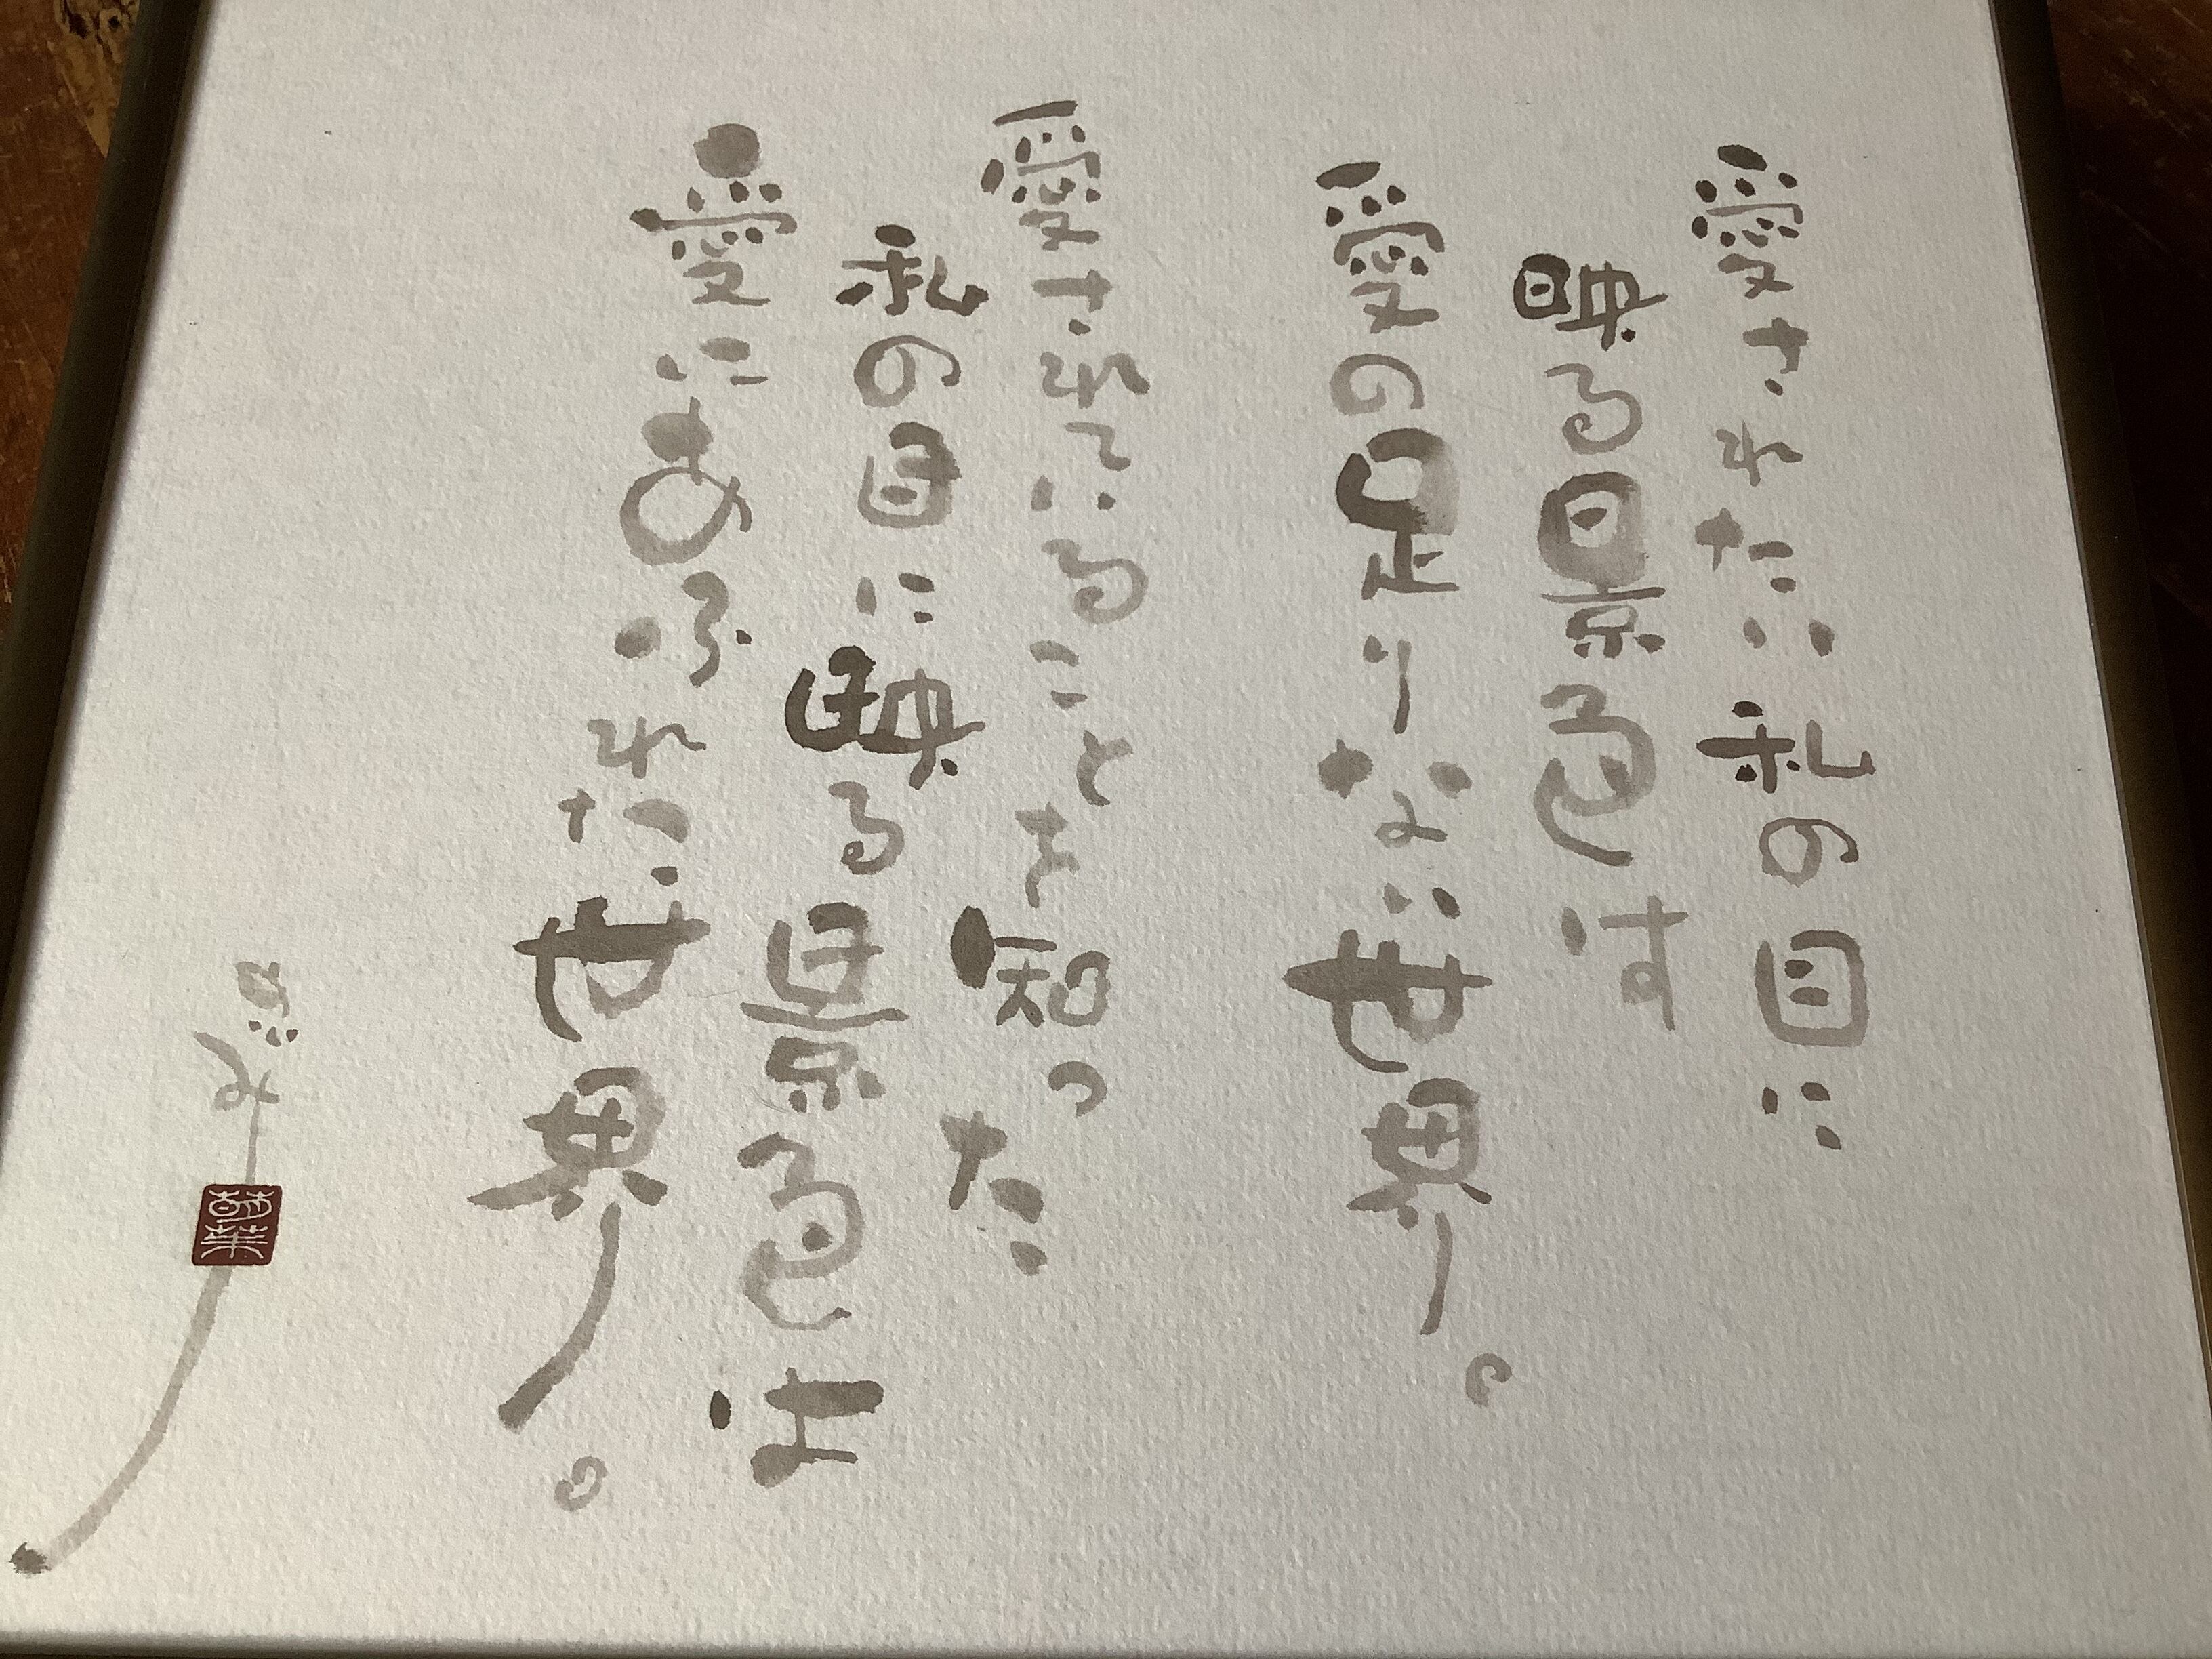 愛されたい私の目に
映る景色は
愛の足りない世界。
愛されていることを知った
私の目に映る景色は
愛にあふれた世界。